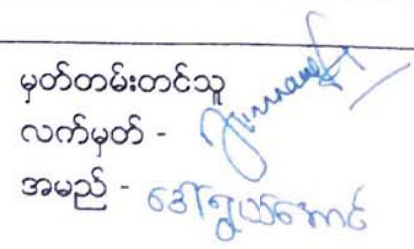 မှတ်တမ်းတင်သူ
လက်မှတ် -
အမည် - ဒေါ်ရွှယ်အောင်